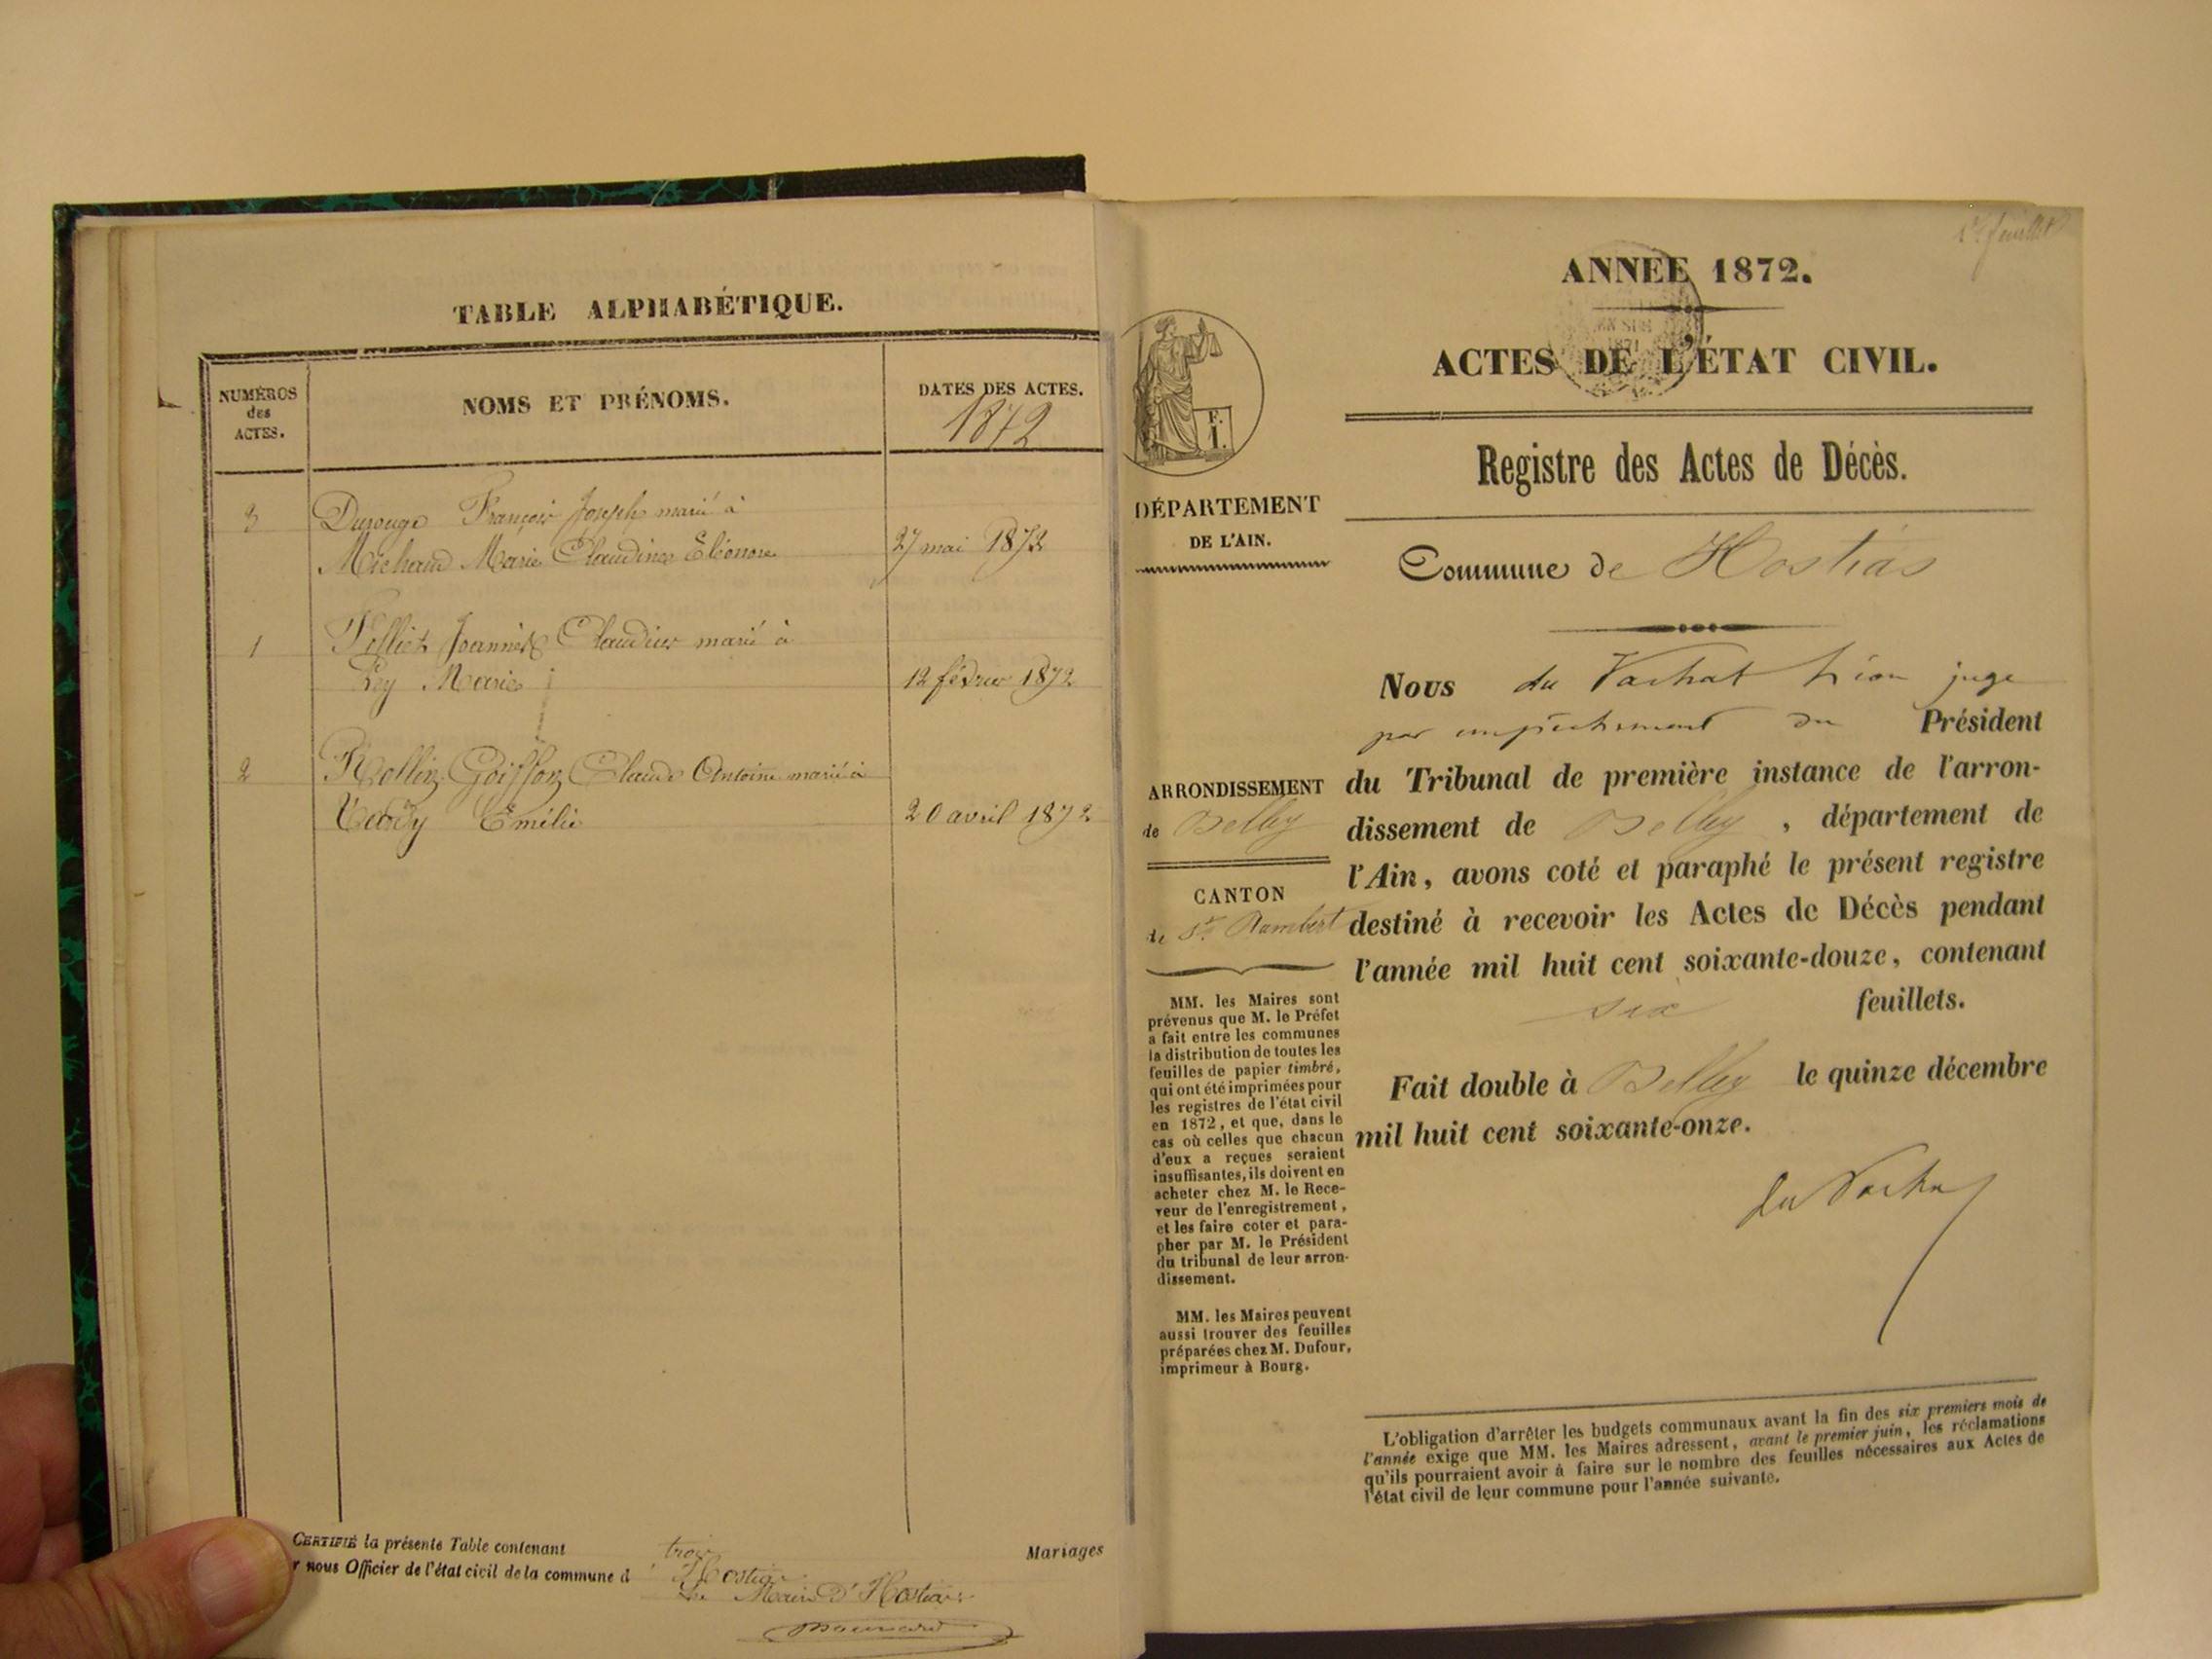 TABLE ALPHABÉTIQUE.
NUMÉROS
des
ACTES.
NOMS ET PRÉNOMS.
DATES DES ACTES.
1872
3
Durouge François Joseph marié à
Michaud Marie Claudine Eléonore
27 mai 1872
1
Joannès Claudius marié à
Rey Marie
12 février 1872
2
Goiffon Claude Antoine marié à
Émélie
20 avril 1872
CERTIFIÉ la présente Table contenant trois Mariages
r nous Officier de l'état civil de la commune d'Hostias
Le Maire d'Hostias
1er feuillet
ANNÉE 1872.
ACTES DE L'ÉTAT CIVIL.
Registre des Actes de Décès.
F.
I.
DÉPARTEMENT
DE L'AIN.
Commune de Hostias
ARRONDISSEMENT
de Belley
CANTON
de St Rambert
MM. les Maires sont
prévenus que M. le Préfet
a fait entre les communes
la distribution de toutes les
feuilles de papier timbré,
qui ont été imprimées pour
les registres de l'état civil
en 1872, et que, dans le
cas où celles que chacun
d'eux a reçues seraient
insuffisantes, ils doivent en
acheter chez M. le Rece-
veur de l'enregistrement,
et les faire coter et para-
pher par M. le Président
du tribunal de leur arron-
dissement.
MM. les Maires peuvent
aussi trouver des feuilles
préparées chez M. Dufour,
imprimeur à Bourg.
Nous du Vachat Léon juge
par empêchement du Président
du Tribunal de première instance de l'arron-
dissement de Belley, département de
l'Ain, avons coté et paraphé le présent registre
destiné à recevoir les Actes de Décès pendant
l'année mil huit cent soixante-douze, contenant
six feuillets.
Fait double à Belley le quinze décembre
mil huit cent soixante-onze.
du Vachat
L'obligation d'arrêter les budgets communaux avant la fin des six premiers mois de
l'année exige que MM. les Maires adressent, avant le premier juin, les réclamations
qu'ils pourraient avoir à faire sur le nombre des feuilles nécessaires aux Actes de
l'état civil de leur commune pour l'année suivante.